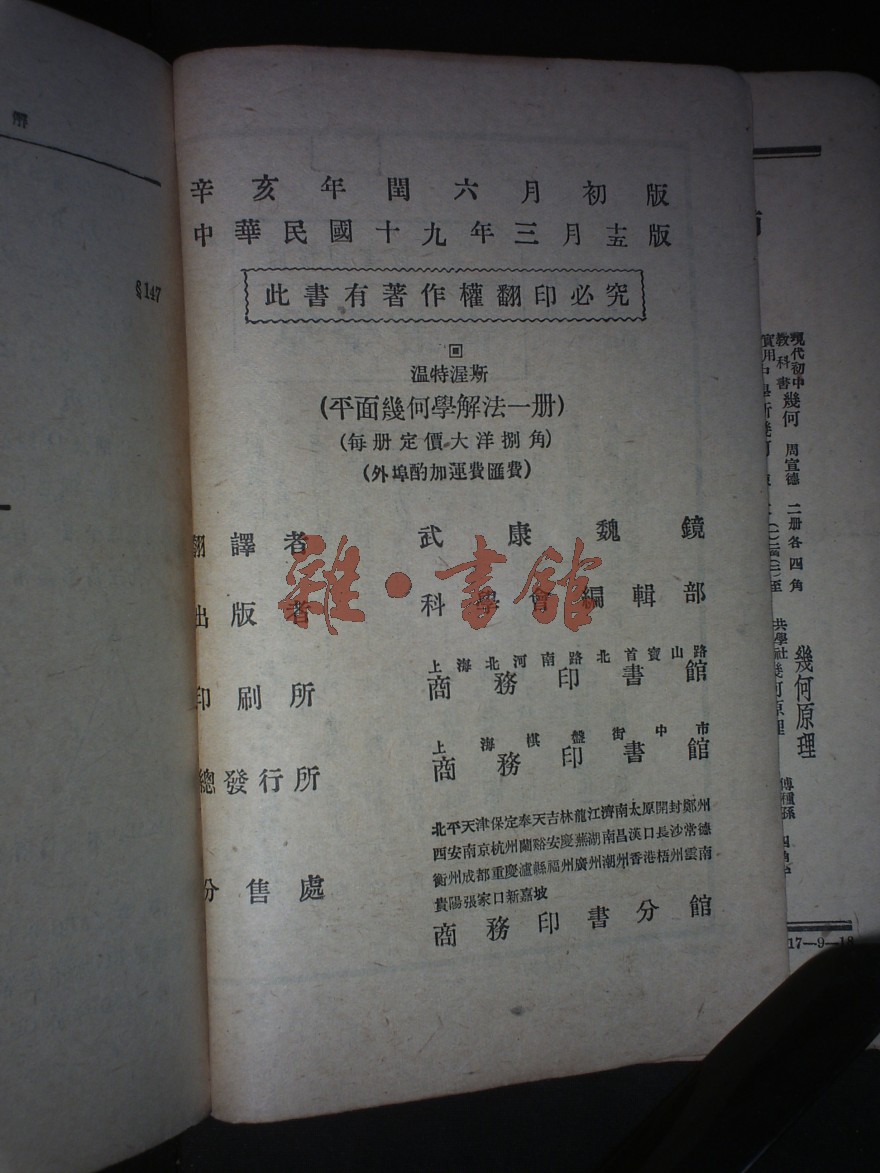 §147
辛亥年閏六月初版
中華民國十九年三月十五版
此書有著作權翻印必究
回
溫特渥斯
(平面幾何學解法一册)
(每册定價大洋捌角)
(外埠酌加運費匯費)
翻譯者 武康魏鏡
出版者 科學會編輯部
印刷所 上海北河南路北首寶山路
商務印書館
總發行所 上海棋盤街中市
商務印書館
分售處
北平天津保定奉天吉林龍江濟南太原開封鄭州
西安南京杭州蘭谿安慶蕪湖南昌漢口長沙常德
衡州成都重慶瀘縣福州廣州潮州香港梧州雲南
貴陽張家口新嘉坡
商務印書分館
雜·書館
現代初中教科書 幾何 周宣德 二册各四角
共學社幾何原理
幾何原理
傅種孫
17—9—18